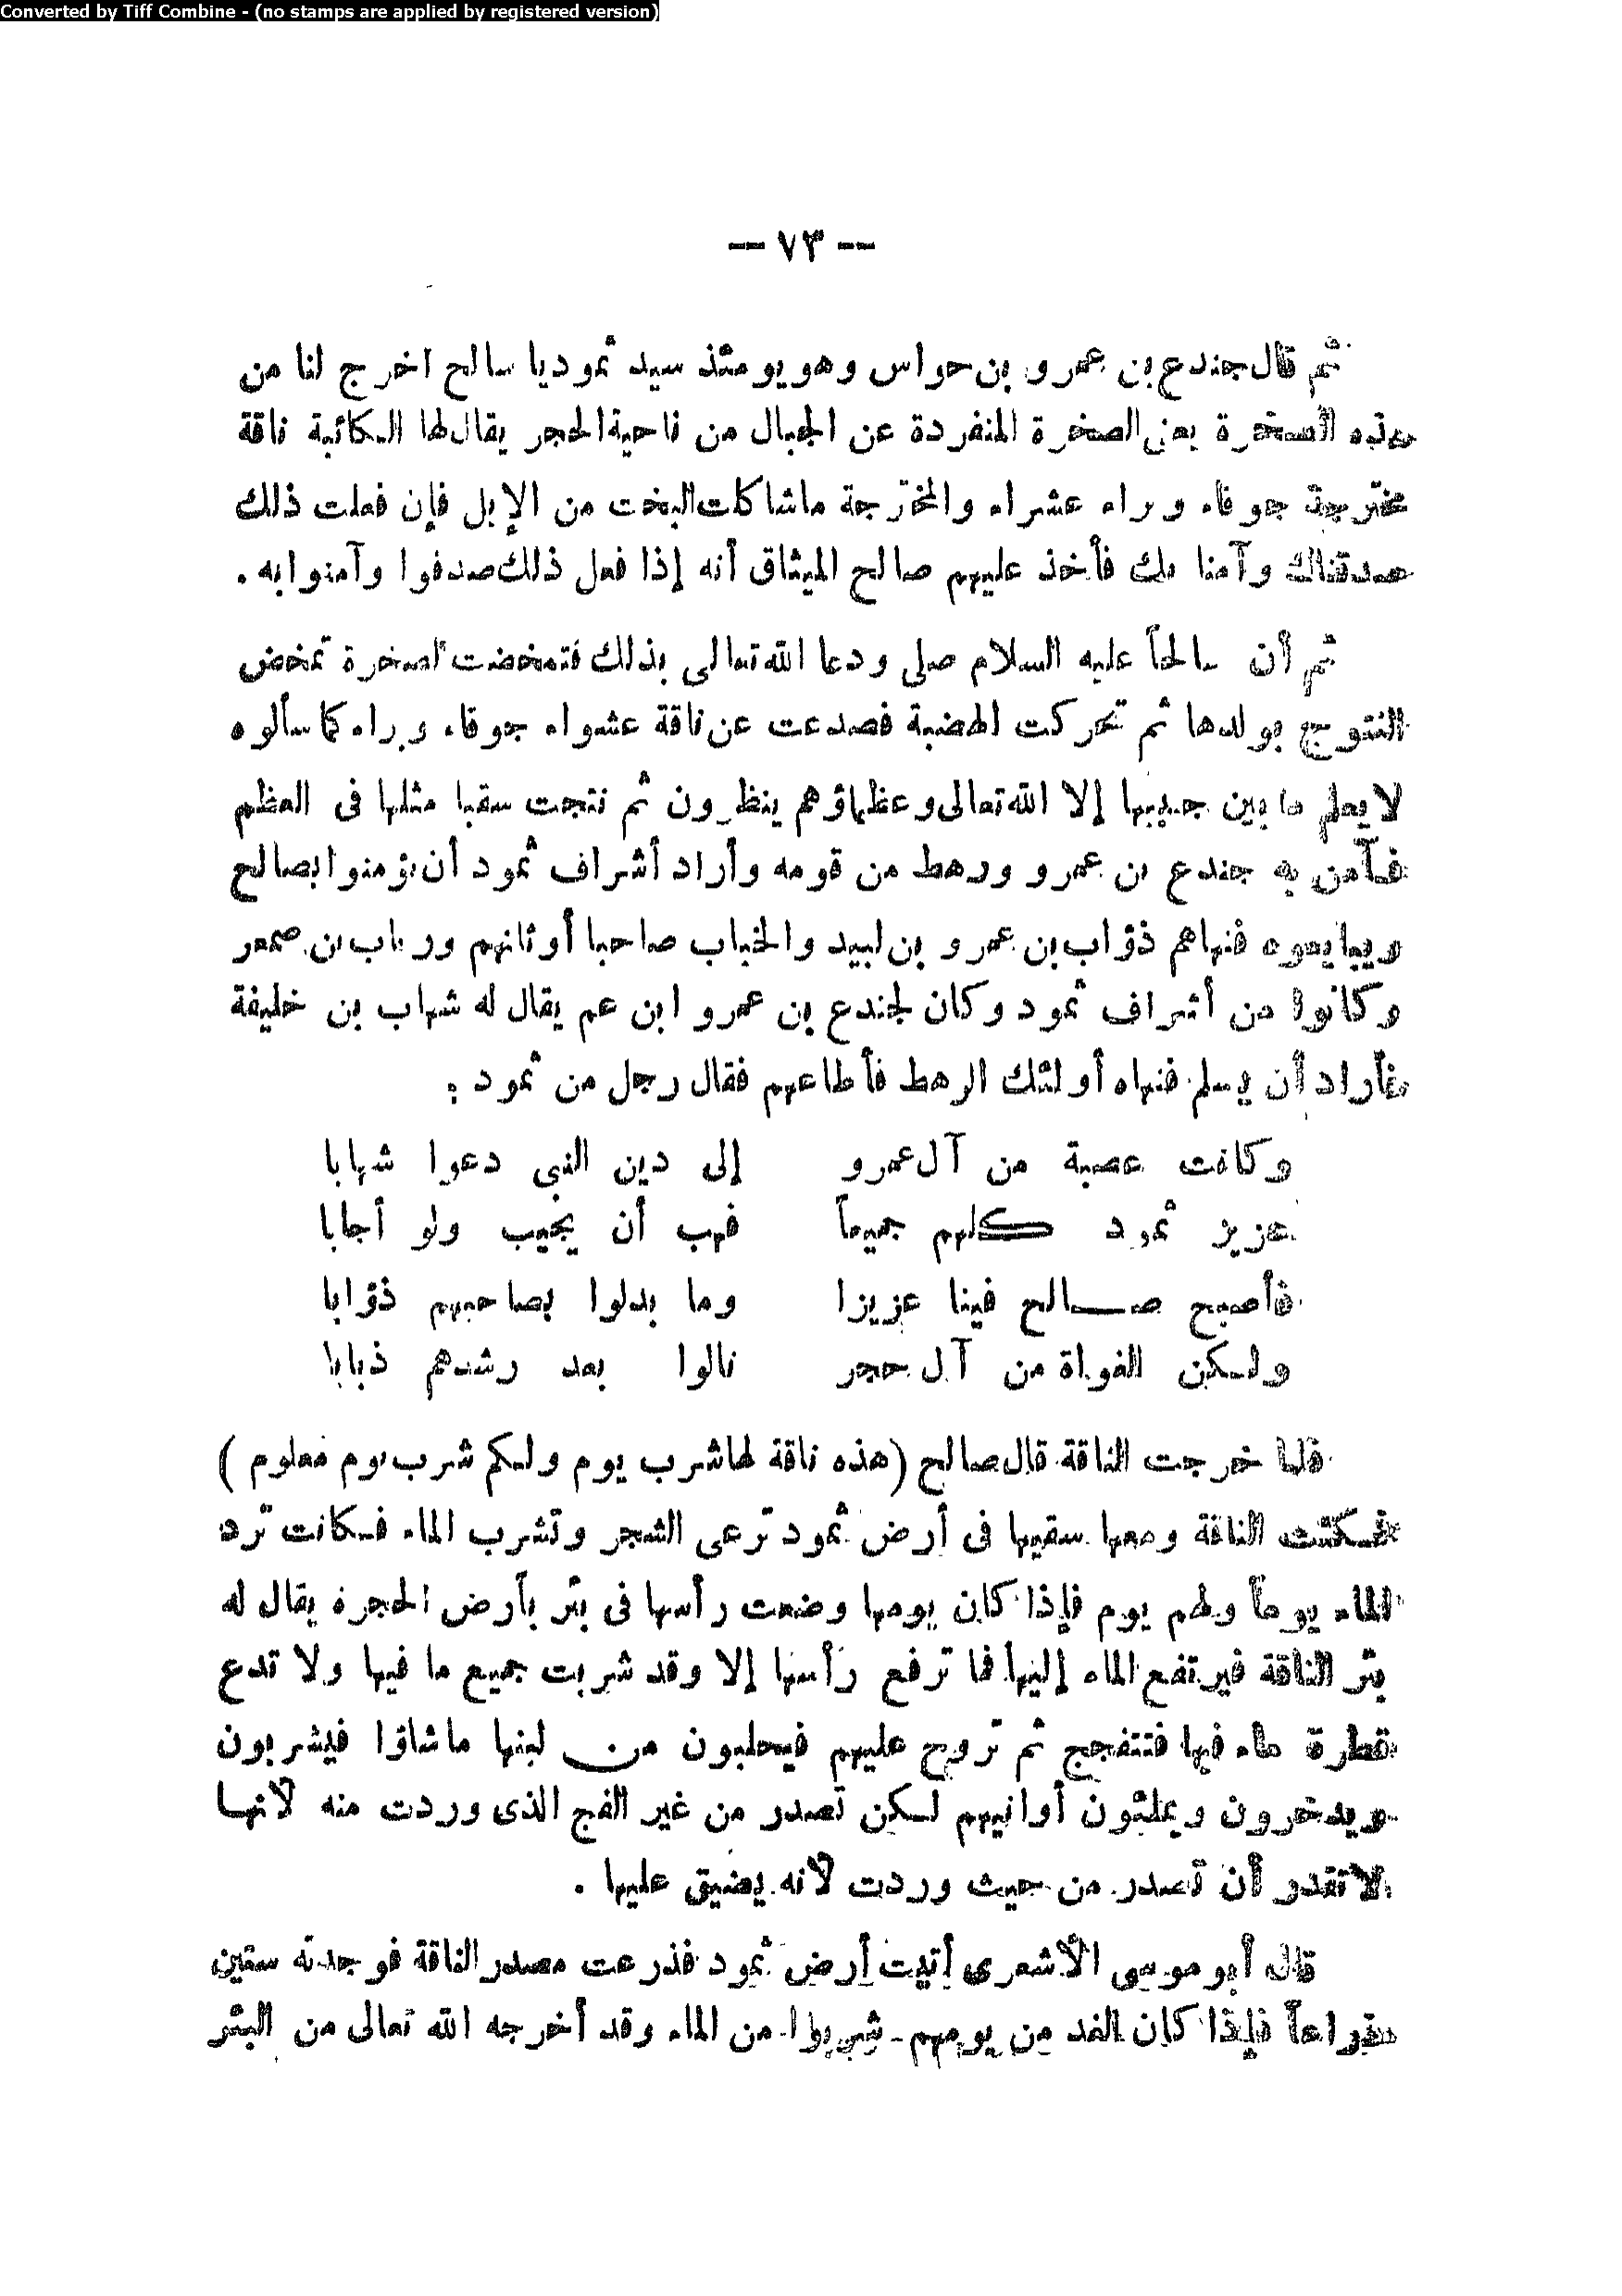 Converted by Tiff Combine - (no stamps are applied by registered version)
— ٧٣ —
ثم قال جندع بن عمرو بن حواس وهو يومئذ سيد ثمود يا صالح اخرج لنا من
هذه الصخرة يعنى الصخرة المنفردة عن الجبال من ناحية الحجر يقال لها الكائبة ناقة
مخترجة جوفاء وبراء عشراء والمخترجة ما شاكلت البخت من الإبل فإن فعلت ذلك
صدقناك وآمنا بك فأخذ عليهم صالح الميثاق أنه إذا فعل ذلك صدقوا وآمنوا به .
ثم أن صالحاً عليه السلام صلى ودعا الله تعالى بذلك فتمخضت الصخرة تمخض
النتوج بولدها ثم تحركت الهضبة فصدعت عن ناقة عشراء جوفاء وبراء كما سألوه
لا يعلم ما بين جنبيها إلا الله تعالى وعظماؤهم ينظرون ثم نتجت سقبا مثلها فى العظم
فآمن به جندع بن عمرو ورهط من قومه وأراد أشراف ثمود أن يؤمنوا بصالح
ويبايعوه فنهاهم ذؤاب بن عمرو بن لبيد والخباب صاحبا أوثانهم ورباب بن صمعر
وكانوا من أشراف ثمود وكان لجندع بن عمرو ابن عم يقال له شهاب بن خليفة
فأراد أن يسلم فنهاه أولئك الرهط فأطاعهم فقال رجل من ثمود :
وكانت عصبة من آل عمرو إلى دين النبى دعوا شهابا
عزيز ثمود كلهم جميعاً فهب أن يجيب ولو أجابا
فأصبح صالح فينا عزيزا وما بدلوا بصاحبهم ذؤابا
ولكن الغواة من آل حجر نالوا بعد رشدهم ذبابا
فلما خرجت الناقة قال صالح (هذه ناقة لها شرب يوم ولكم شرب يوم معلوم )
فمكثت الناقة ومعها سقيها فى أرض ثمود ترعى الشجر وتشرب الماء فكانت ترد
الماء يوماً ولهم يوم فإذا كان يومها وضعت رأسها فى بئر بأرض الحجرة يقال له
بئر الناقة فيرتفع الماء إليها فما ترفع رأسها إلا وقد شربت جميع ما فيها ولا تدع
قطرة ماء فيها فتتفجج ثم تروح عليهم فيحلبون من لبنها ما شاؤا فيشربون
ويدخرون ويملئون أوانيهم لكن تصدر من غير الفج الذى وردت منه لانها
لا تقدر أن تصدر من حيث وردت لانه يضيق عليها .
قال أبو موسى الأشعرى أتيت أرض ثمود فذرعت مصدر الناقة فوجدته ستين
ذراعاً فإذا كان الغد من يومهم شربوا من الماء وقد أخرجه الله تعالى من البئر